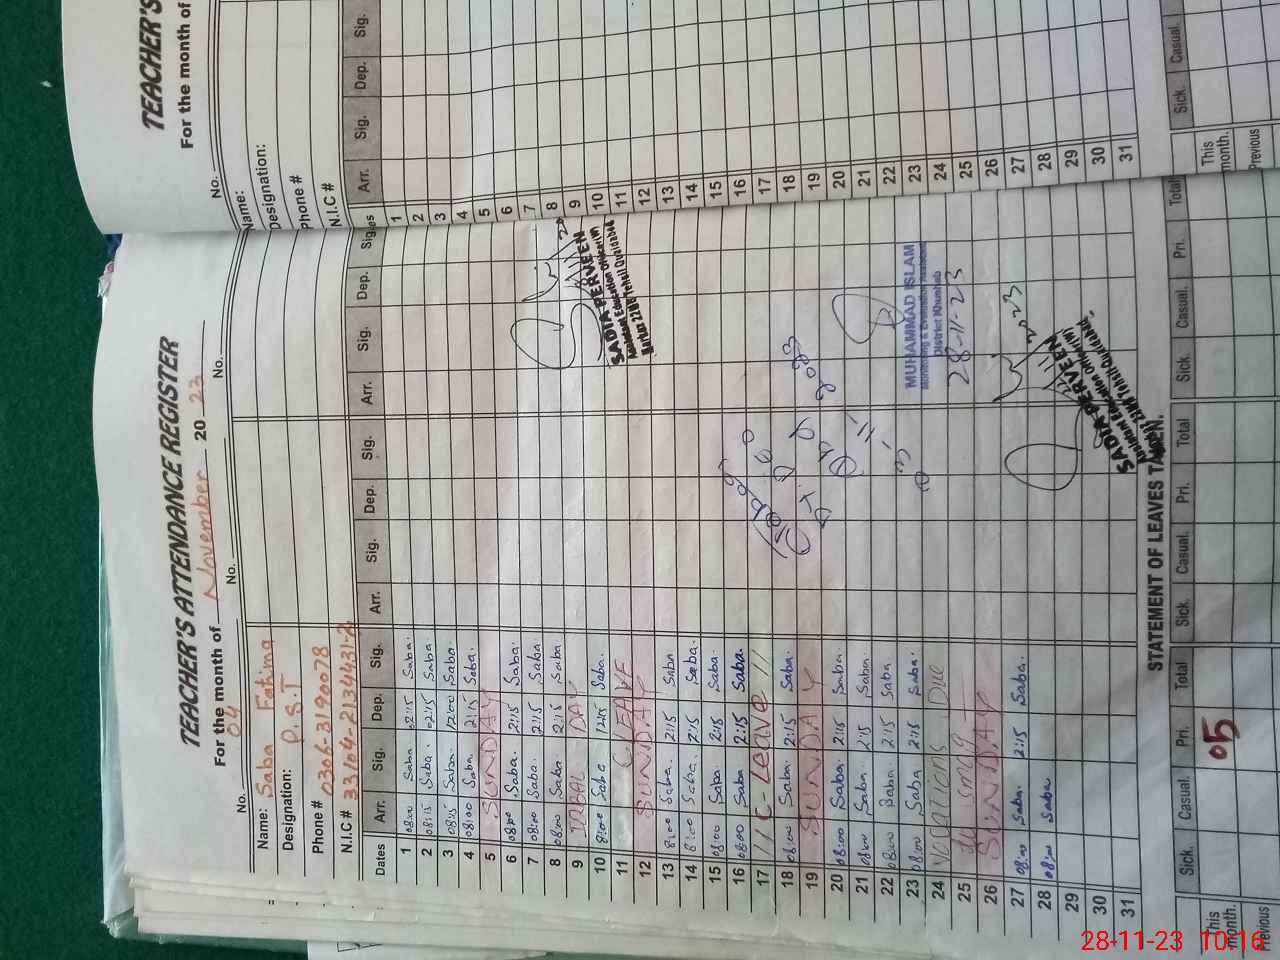 TEACHER'S ATTENDANCE REGISTER
For the month of November 2023
No. 04 No. No.
Name: Saba Fatima
Designation: P.S.T
Phone # 0306-3190078
N.I.C # 33104-2134431-2
Dates Arr. Sig. Dep. Sig. Arr. Sig. Dep. Sig. Arr. Sig. Dep. Sig.
1 08:00 Saba 02:15 Saba.
2 08:15 Saba. 02:15 Saba
3 08:15 Saba. 12:00 Saba.
4 08:00 Saba. 2:15 Saba.
5 SUNDAY
6 08:00 Saba. 2:15 Saba.
7 08:00 Saba. 2:15 Saba
8 08:00 Saba. 2:15 Saba
9 IQBAL DAY
10 8:00 Saba 12:15 Saba.
11 C LEAVE
12 SUNDAY
13 8:00 Saba. 2:15 Saba
14 8:00 Saba. 2:15 Saba.
15 08:00 Saba 2:15 Saba.
16 08:00 Saba 2:15 Saba.
17 C-Leave
18 08:00 Saba. 2:15 Saba.
19 SUNDAY
20 08:00 Saba. 2:15 Saba.
21 08:00 Saba. 2:15 Saba.
22 08:00 Saba. 2:15 Saba
23 08:00 Saba 2:15 Saba.
24 Due
25 smog
26 SUNDAY
27 08:00 Saba. 2:15 Saba.
28 08:00 Saba
29
30
31
SADIA PERVEEN
Assistant Education Officer (W)
MUHAMMAD ISLAM
Monitoring & Evaluation Assistant
District Khushab
28-11-23
SADIA PERVEEN
Assistant Education Officer (W)
STATEMENT OF LEAVES TAKEN.
Sick. Casual. Pri. Total Sick. Casual. Pri. Total Sick. Casual. Pri. Total
This month. 05
Previous
TEACHER'S
For the month of
No.
Name:
Designation:
Phone #
N.I.C #
Arr. Sig. Dep. Sig.
1
2
3
4
5
6
7
8
9
10
11
12
13
14
15
16
17
18
19
20
21
22
23
24
25
26
27
28
29
30
31
Sick. Casual
This month.
Previous
28-11-23 10:16